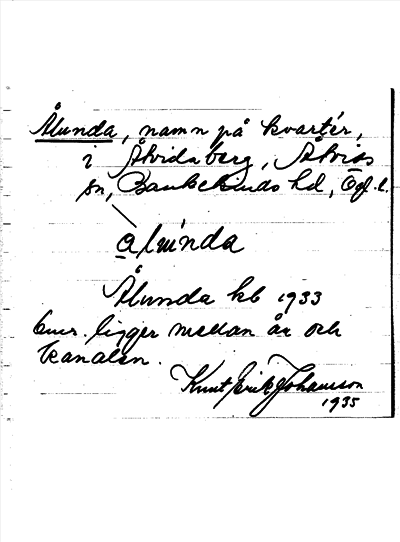 Ålunda, namn på kvartér,
i Åtvidaberg, Åtvids
sn, Bankekinds hd, Ögl.
Ålunda kb 1933
ligger mellan ån och
kanalen.
Knut Erik Johansson
1935